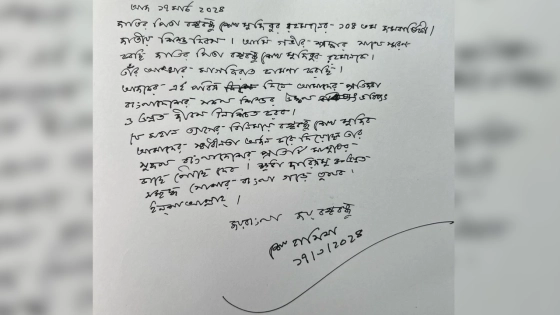 আজ ১৭ মার্চ ২০২৪
জাতির পিতা বঙ্গবন্ধু শেখ মুজিবুর রহমানের ১০৪ তম জন্মবার্ষিকী।
জাতীয় শিশু দিবস। আমি গভীর শ্রদ্ধার সাথে স্মরণ
করছি জাতির পিতা বঙ্গবন্ধু শেখ মুজিবুর রহমানকে।
তাঁর আত্মার মাগফিরাত কামনা করছি।
আজকের এই পবিত্র দিনে আমাদের প্রতিজ্ঞা
বাংলাদেশের সকল শিশুর উজ্জ্বল ভবিষ্যৎ
ও উন্নত জীবন নিশ্চিত করব।
যে মহান ত্যাগের বঙ্গবন্ধু শেখ মুজিব
আমাদের স্বাধীনতা অর্জন করে দিয়েছেন তার
সুফল বাংলাদেশের প্রতিটি মানুষের
কাছে পৌঁছে দেব।
সমৃদ্ধ সোনার বাংলা গড়ে তুলব।
ইনশাআল্লাহ্।
জয় বাংলা জয় বঙ্গবন্ধু
শেখ হাসিনা
১৭/৩/২০২৪